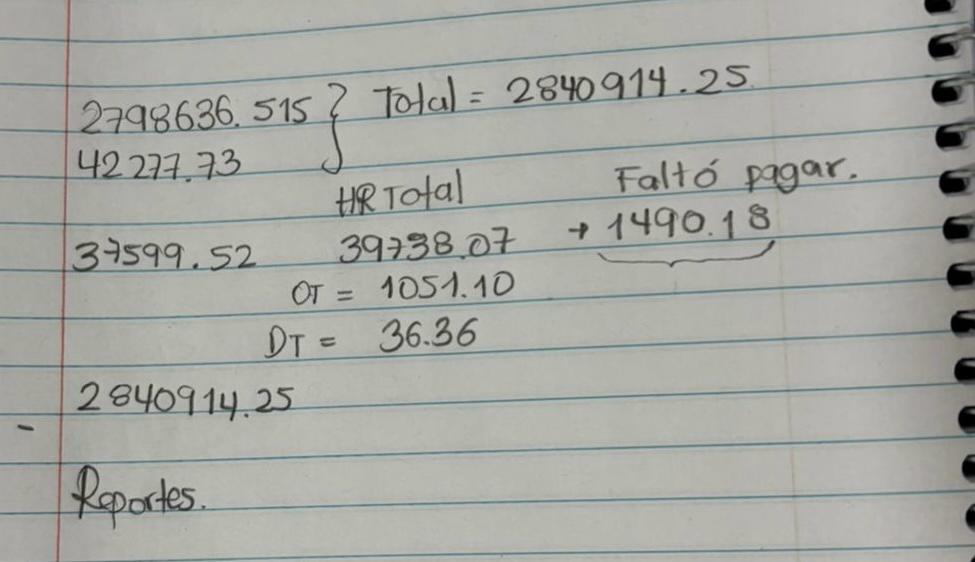 2798636.515 } Total = 2840914.25
42277.73
HR Total Faltó pagar.
37599.52 39738.07 → 1490.18
OT = 1051.10
DT = 36.36
2840914.25
-
Reportes.